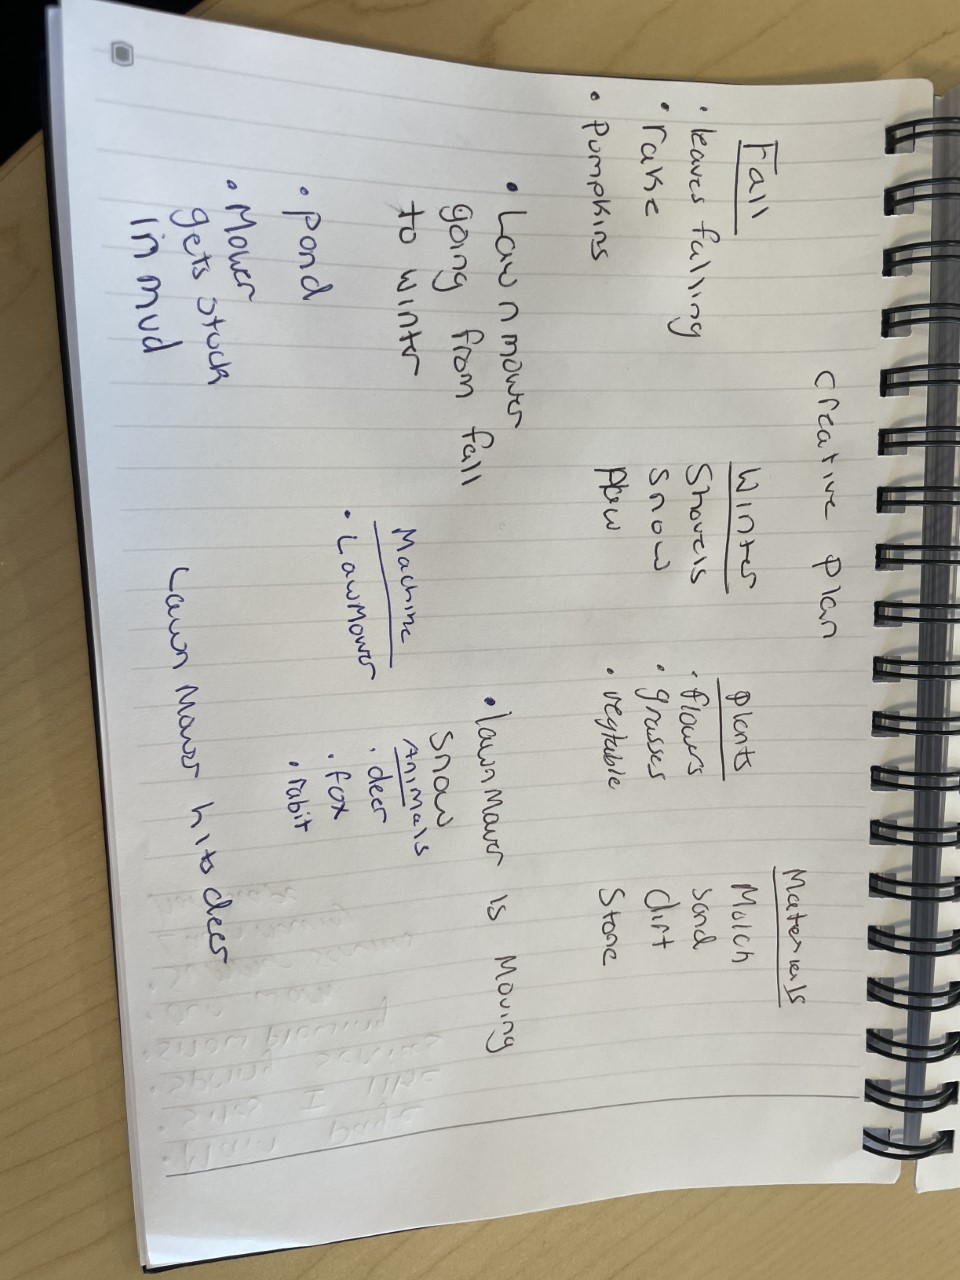 Creative Plan
Fall
• leaves falling
• rake
• Pumpkins
Winter
Shovels
Snow
Plow
Plants
• flowers
• grasses
• vegtable
Materials
Mulch
sand
dirt
Stone
• Lawn mower
going from fall
to winter
• Pond
• Mower
gets stuck
in mud
Machine
• LawMower
• lawn Mower is Moving
Snow
Animals
• deer
• fox
• rabit
Lawn Mower hits deer